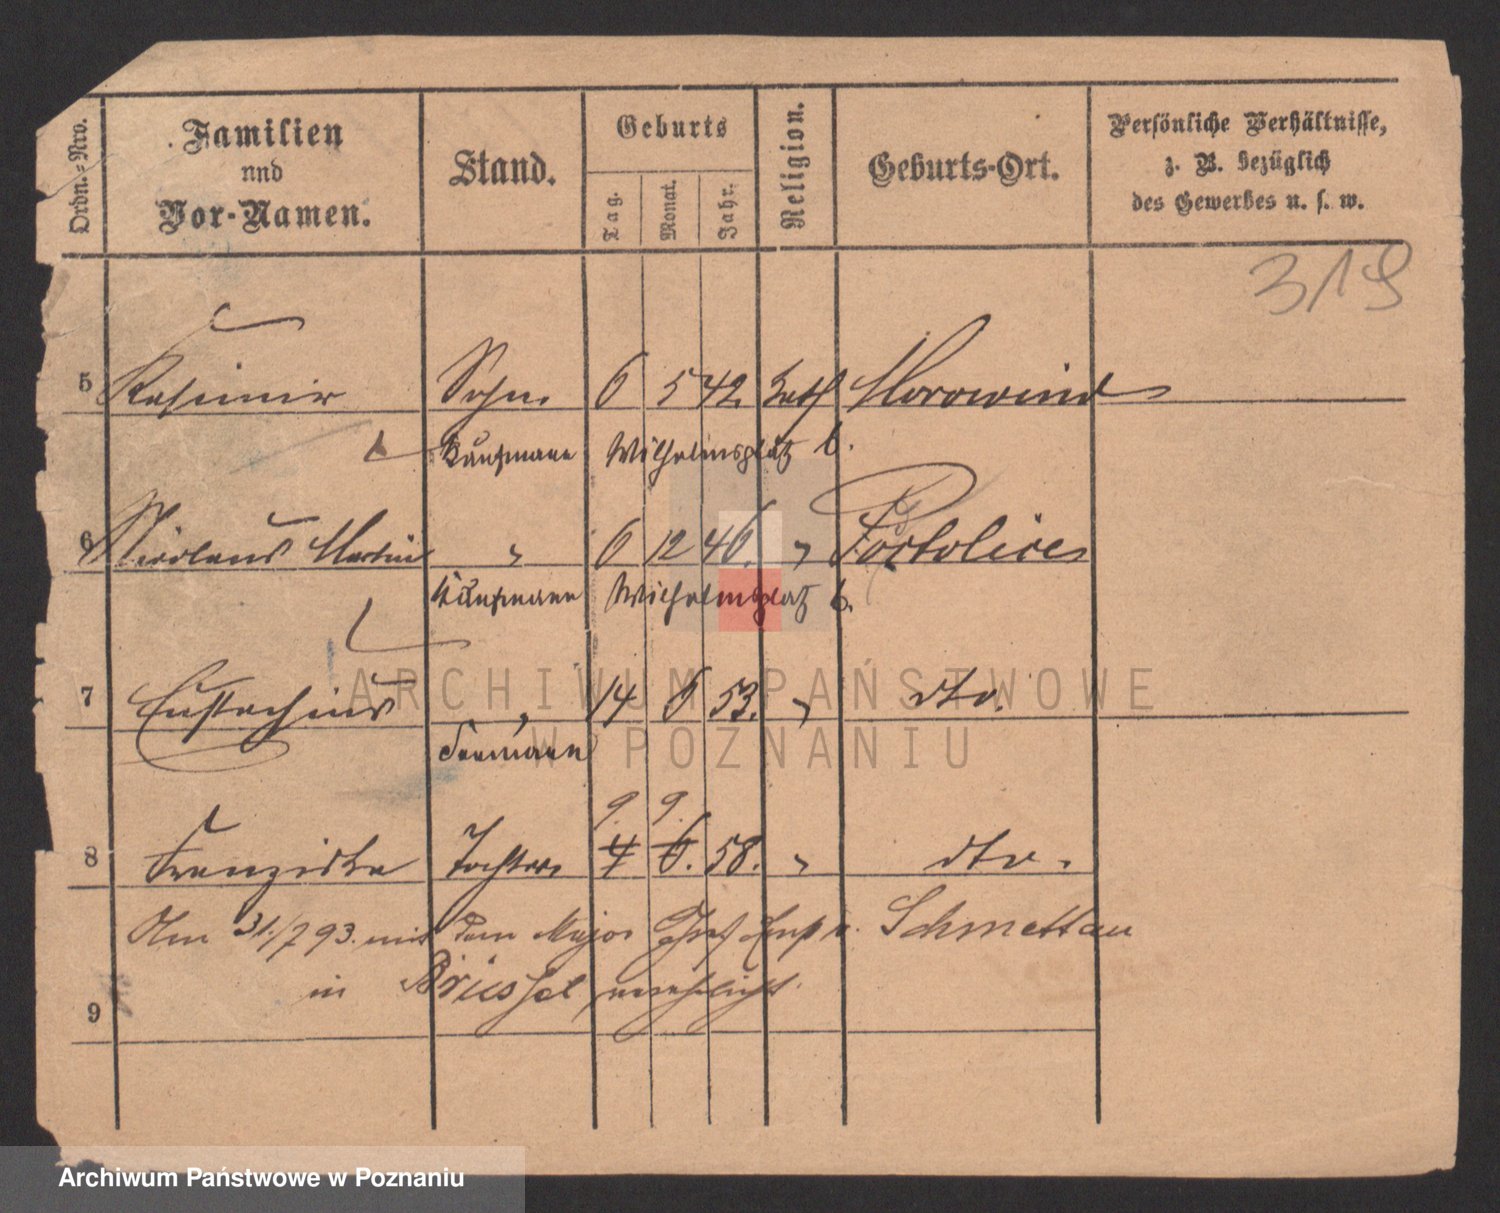 Ordn.-Nro.
Familien und Vor-Namen.
Stand.
Geburts
Tag. Monat. Jahr.
Religion.
Geburts-Ort.
Persönliche Verhältnisse,
z. B. bezüglich
des Gewerbes u. s. w.
319
5 Kasimir Sohn. 6 5 42. kath
Kaufmann Wilhelmsplatz 6.
6 Nicolaus Martin " 6 12 46. "
Kaufmann Wilhelmsplatz 6.
7 Eustachius " 14 6 53. " dto.
8 Franziska Tochter 9. 9. 4 6. 58. " dto.
Am 31/7 93. mit dem Major Graf v. Schmettau
in verehelicht.
9
ARCHIWUM PAŃSTWOWE
W POZNANIU
Archiwum Państwowe w Poznaniu